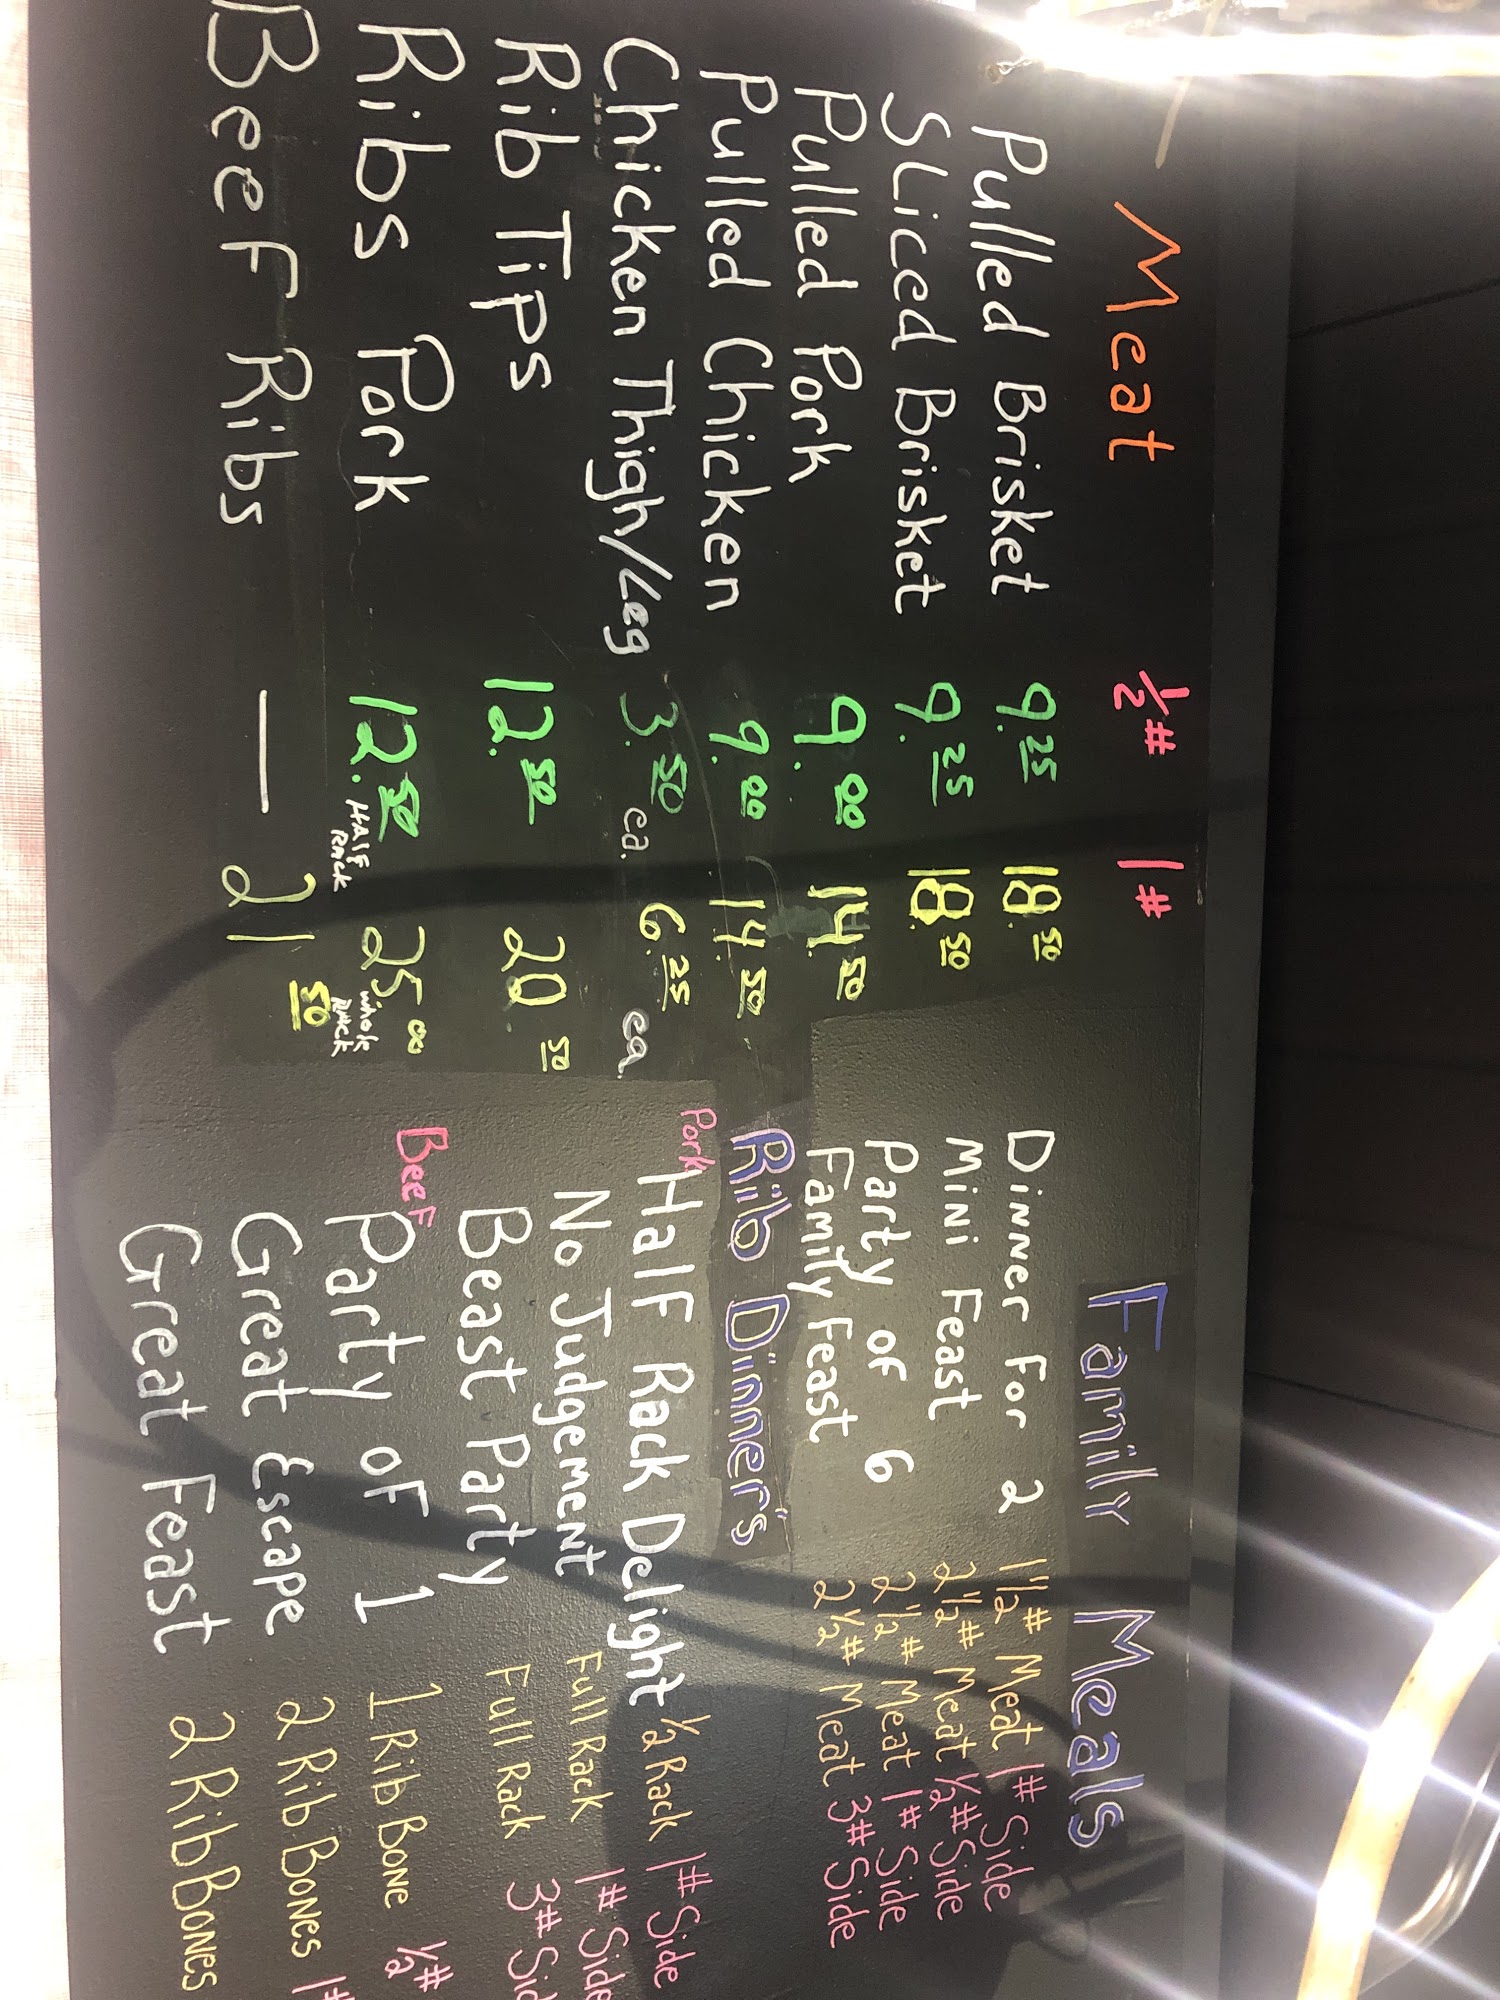 Meat ½# 1#
Pulled Brisket 9.25 18.50
Sliced Brisket 9.25 18.50
Pulled Pork 9.00 14.50
Pulled Chicken 9.00 14.50
Chicken Thigh/Leg 3.50 ea. 6.25 ea.
Rib Tips 12.50 20.50
Ribs Pork 12.50 Half Rack 25.00 Whole Rack
BeeF Ribs — 21.50
Family Meals
Dinner For 2 1½# Meat 1# Side
Mini Feast 2½# Meat ½# Side
Party oF 6 2½# Meat 1# Side
Family Feast 2½# Meat 3# Side
Rib Dinner's
Pork
HalF Rack Delight ½ Rack 1# Side
No Judgement Full Rack 1# Side
Beast Party Full Rack 3# Sid
BeeF
Party oF 1 1 Rib Bone ½#
Great Escape 2 Rib Bones 1#
Great Feast 2 Rib Bones